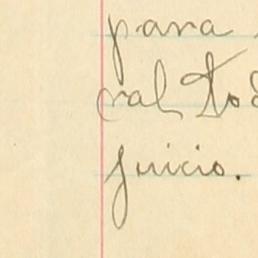 para
ral to
juicio.